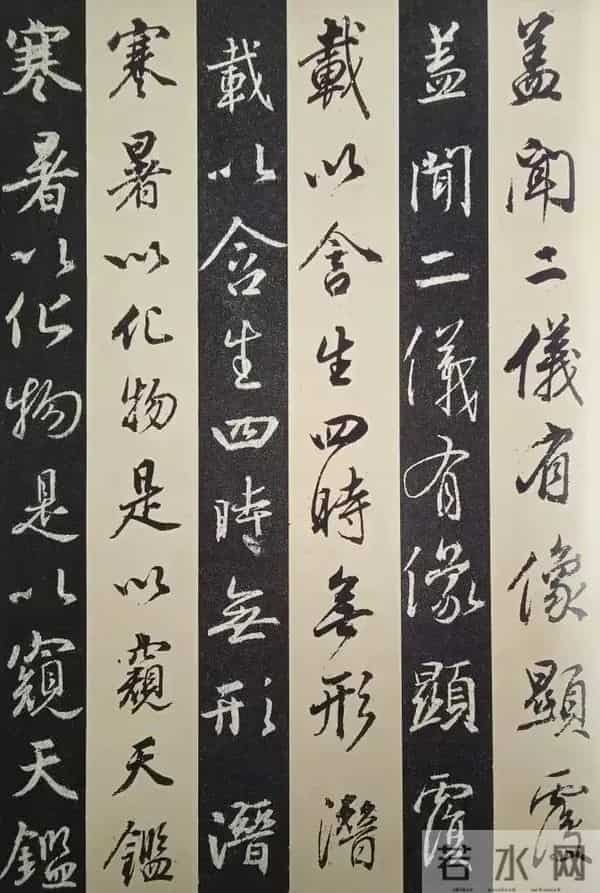 盖聞二儀有像顯覆
盖聞二儀有像顯覆
載以含生四時無形潛
載以含生四時無形潛
寒暑以化物是以窺天鑑
寒暑以化物是以窺天鑑
若水网